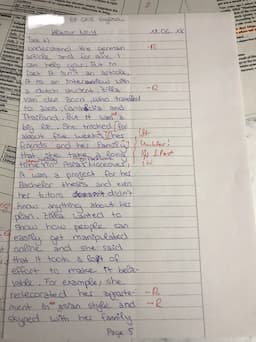 See a)
understand the german
article and for sure I
can help you. But in
fact it isn't an article,
it is an Interview with
a dutch student, Zilla
van der Born, who traveled
to Laos, Cambodia and
Thailand. But it was a
big lie. She tricked for
about five weeks her
friends and her family
that she take a long
It was a project for her
Bachelor thesis and even
her tutors didn't
know anything about her
plan. Zilla wanted to
show how people can
easily get manipulated
online and she said
that it took a lot of
effort to make it belie-
vable. For example, she
redecorated her aparte-
ment in asian style and
skyped with her family
Page 5
-R
-R
-R
-R